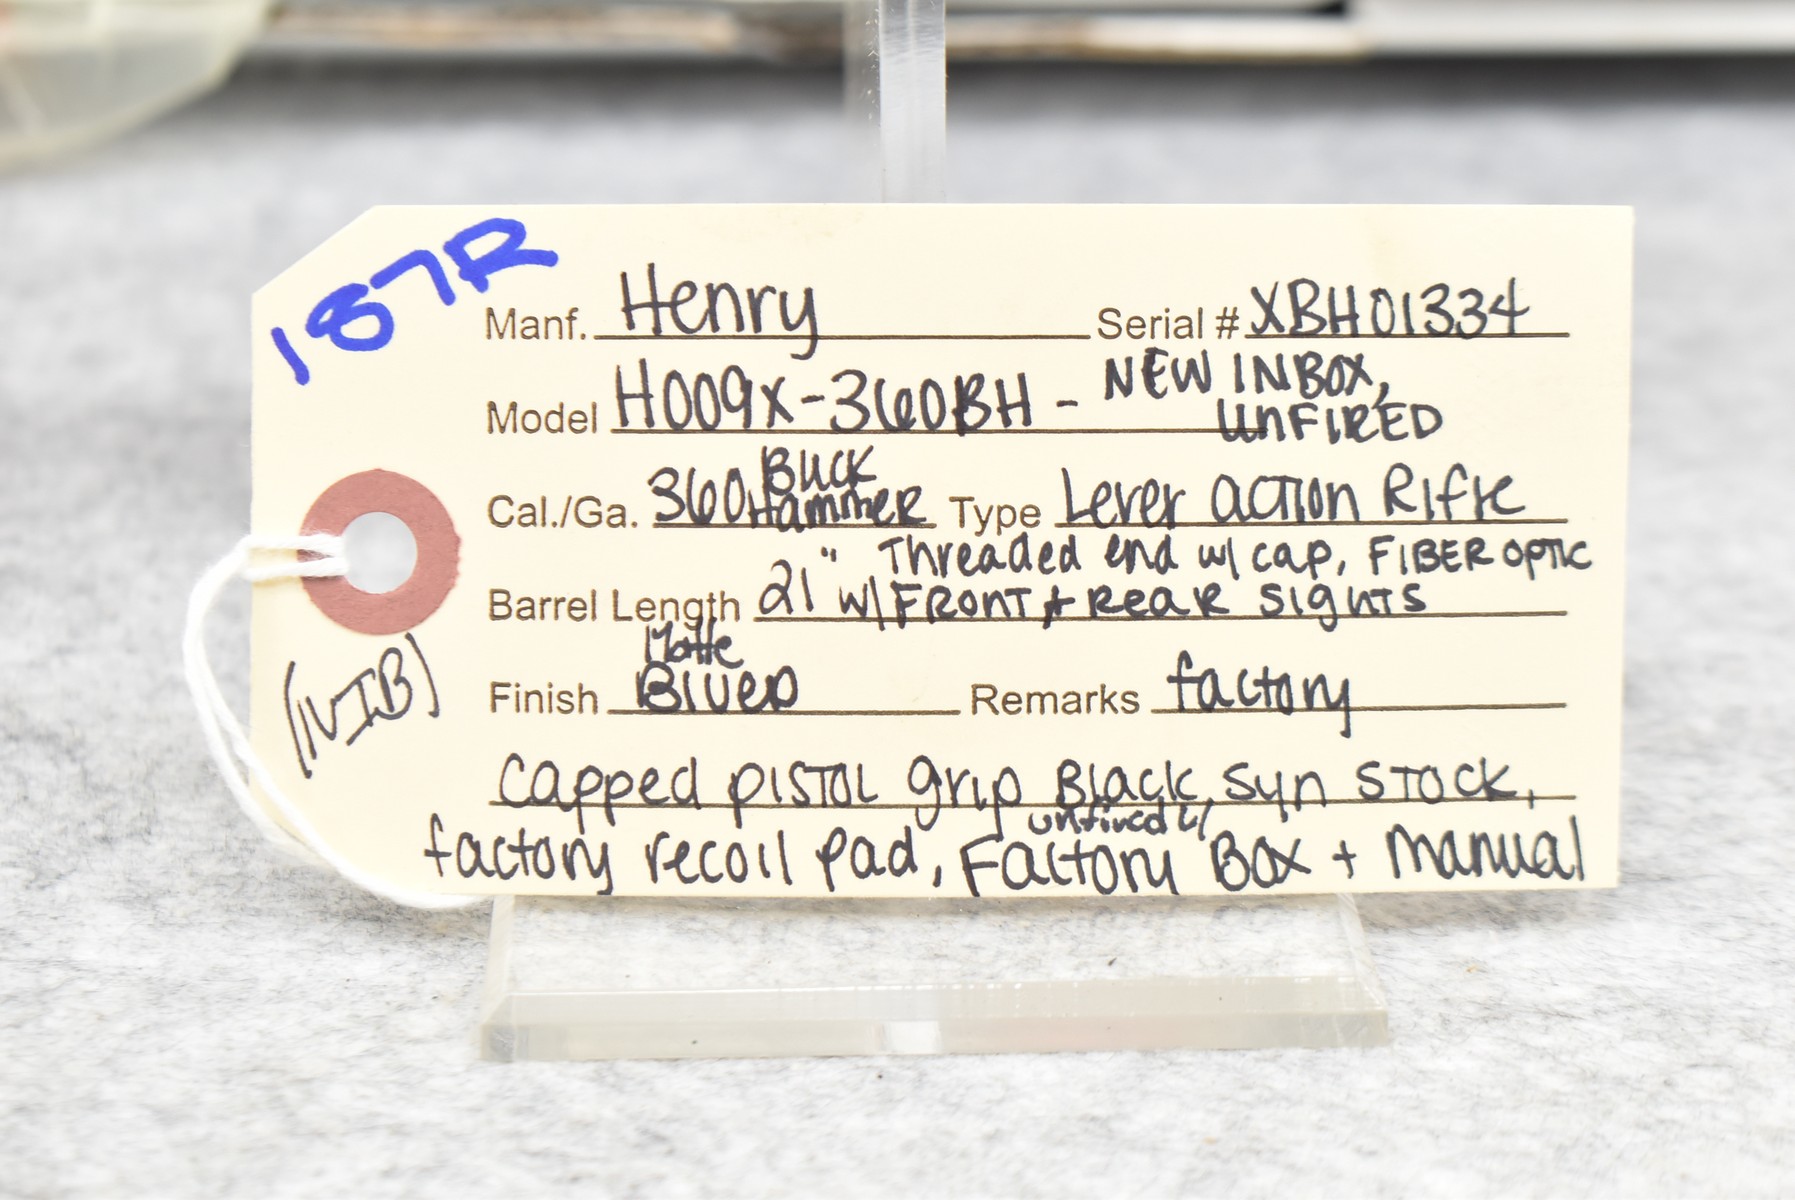 187R
Manf. Henry Serial # XBH01334
Model H009X-360BH - NEW IN BOX,
UNFIRED
Cal./Ga. 360 Buck Hammer Type Lever Action Rifle
Threaded end w/ cap, FIBER OPTIC
Barrel Length 21" w/ FRONT + Rear Sights
Finish Matte Blued Remarks factory
(NIB)
capped PISTOL grip Black, syn STOCK,
unfired w/
factory recoil pad, Factory Box + Manual